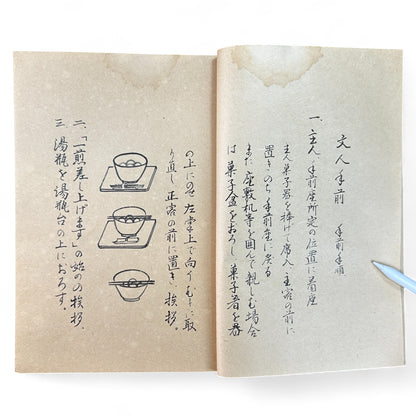 文人手前　手前手順
一、主人、手前座所定の位置に着座
主人菓子器を捧げて席入、主客の前に
置き、のち手前座に戻る
また、座敷机等を囲んで親しむ場合
は菓子盆をおろし、菓子箸を番
の上にのせ、左掌上で向うむきに取
り直し、正客の前に置き、挨拶。
二、「一煎差し上げます」の始めの挨拶、
三、湯瓶を湯瓶台の上におろす。